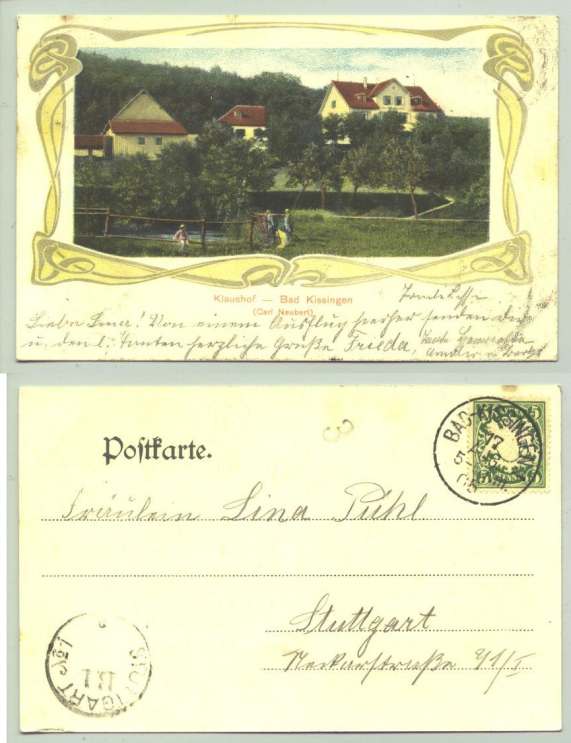 Klaushof — Bad Kissingen
(Carl Neubert)
Liebe Lina! Von einem Ausflug hierher senden dir
u. den l. Tanten herzliche Grüße Frieda, Tante
Postkarte.
BAD-KISSINGEN
17
Fräulein Lina Pühl.
Stuttgart
Neckarstraße
STUTTGART